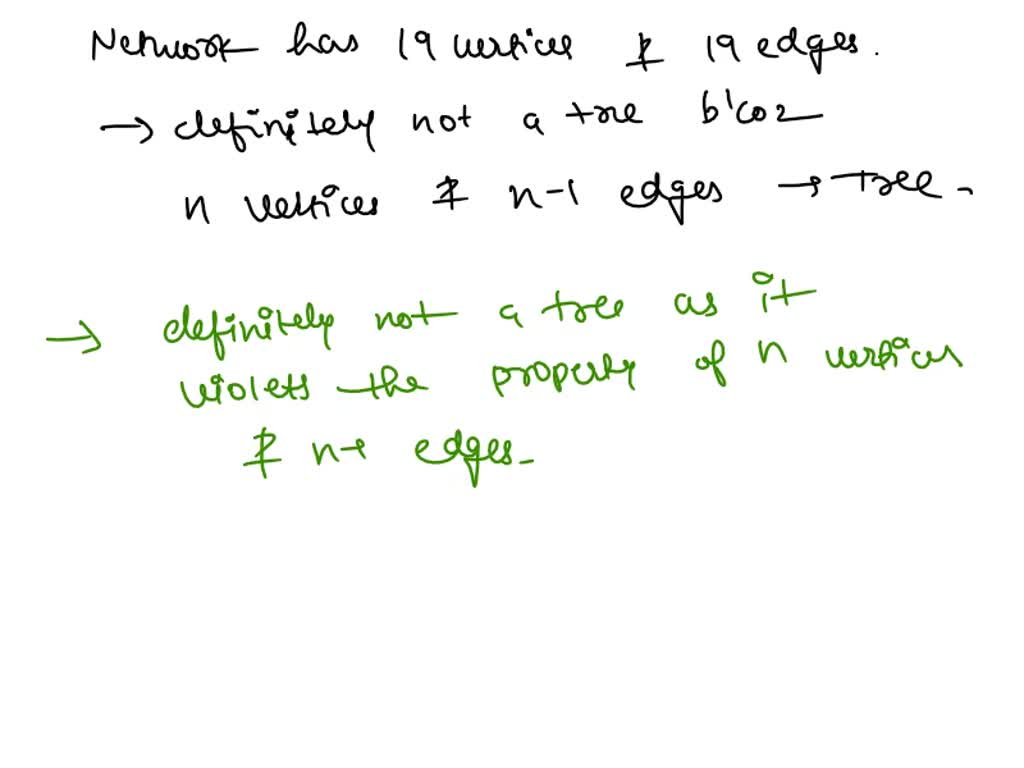 Network has 19 vertices & 19 edges.
→ definitely not a tree b'coz
n vertices & n-1 edges → tree.
→ definitely not a tree as it
violets the property of n vertices
& n-1 edges.